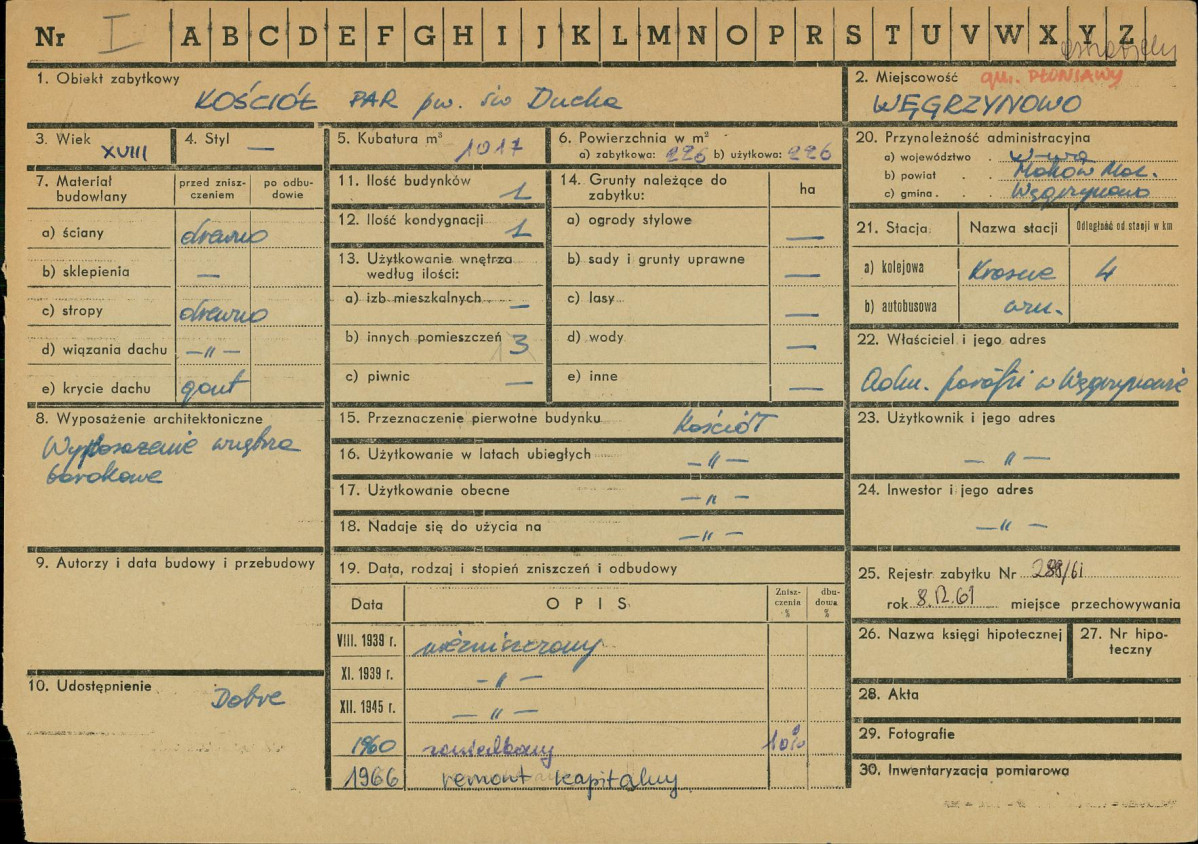 Nr I A B C D E F G H I J K L M N O P R S T U V W X Y Z
ostrołęckie
1. Obiekt zabytkowy
KOŚCIÓŁ PAR pw. św Ducha
2. Miejscowość gm. PŁONIAWY
WĘGRZYNOWO
3. Wiek XVIII
4. Styl —
5. Kubatura m³ 1017
6. Powierzchnia w m²
a) zabytkowa: 226 b) użytkowa: 226
20. Przynoleżność administracyjna
a) województwo W-wa
b) powiat Maków Maz.
c) gmina Węgrzynowo
7. Materiał budowlany
przed zniszczeniem
po odbudowie
a) ściany drewno
b) sklepienia —
c) stropy drewno
d) wiązania dachu —„—
e) krycie dachu gont
11. Ilość budynków 1
12. Ilość kondygnacji 1
13. Użytkowanie wnętrza
według ilości:
a) izb mieszkalnych —
b) innych pomieszczeń 3
c) piwnic —
14. Grunty należące do
zabytku:
ha
a) ogrody stylowe —
b) sady i grunty uprawne —
c) lasy —
d) wody —
e) inne —
21. Stacja Nazwa stacji Odległość od stacji w km
a) kolejowa Krasne 4
b) autobusowa
22. Właściciel i jego adres
Adm. parafii w Węgrzynowie
8. Wyposażenie architektoniczne
Wyposażenie wnętrza
barokowe
15. Przeznaczenie pierwotne budynku Kościół
16. Użytkowanie w latach ubiegłych —„—
17. Użytkowanie obecne —„—
18. Nadaje się do użycia na —„—
23. Użytkownik i jego adres
—„—
24. Inwestor i jego adres
—„—
9. Autorzy i data budowy i przebudowy
10. Udostępnienie Dobre
19. Data, rodzaj i stopień zniszczeń i odbudowy
Data OPIS Zniszczenia % dbudowa %
VIII. 1939 r. niezniszczony
XI. 1939 r. —„—
XII. 1945 r. —„—
1960 zaniedbany 10%
1966 remont kapitalny
25. Rejestr zabytku Nr 288/61
rok 8.12.61 miejsce przechowywania
26. Nazwa księgi hipotecznej
27. Nr hipoteczny
28. Akta
29. Fotografie
30. Inwentaryzacja pomiarowa